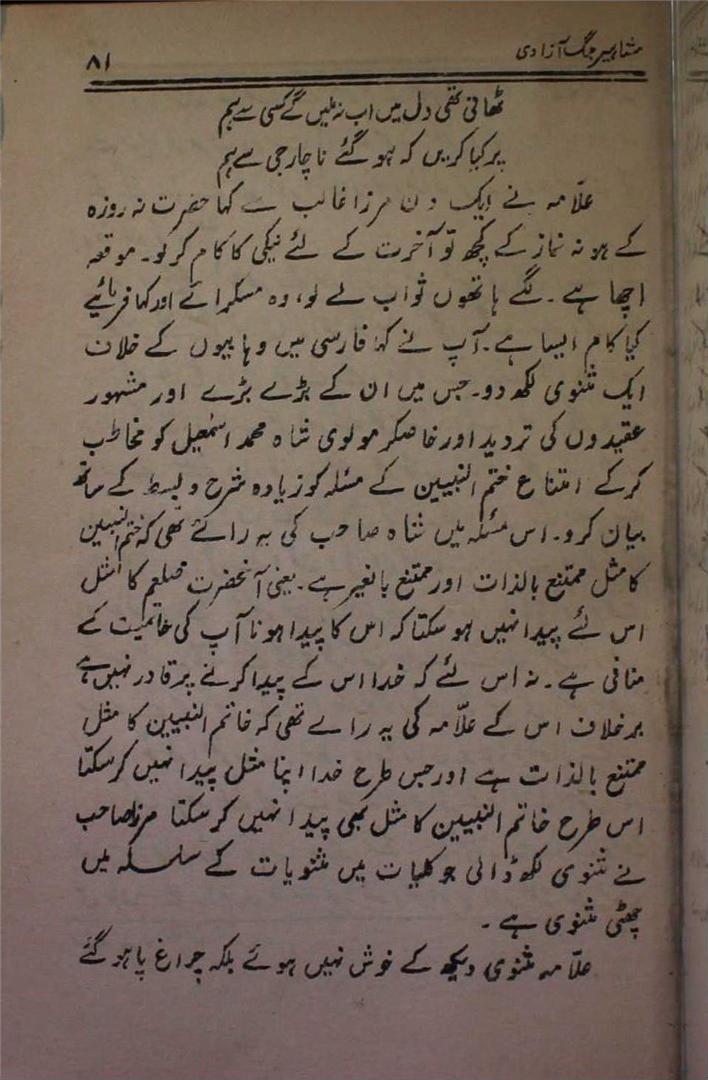 مشاہیر جنگ آزادی
۸۱
ٹھانی تھی دل میں اب نہ ملیں گے کسی سے ہم
پر کیا کریں کہ ہو گئے ناچار جی سے ہم
علّامہ نے ایک دن مرزا غالب سے کہا حضرت نہ روزہ
کے ہو نہ نماز کے کچھ تو آخرت کے لئے نیکی کا کام کر لو۔ موقعہ
اچھا ہے۔ لگے ہاتھوں ثواب لے لو، وہ مسکرائے اور کہا فرمائیے
کیا کام ایسا ہے۔ آپ نے کہا فارسی میں وہابیوں کے خلاف
ایک مثنوی لکھ دو۔ جس میں ان کے بڑے بڑے اور مشہور
عقیدوں کی تردید اور خاصکر مولوی شاہ محمد اسمٰعیل کو مخاطب
کر کے امتناع ختم النبیین کے مسئلہ کو زیادہ شرح و بسط کے ساتھ
بیان کرو۔ اس مسئلہ میں شاہ صاحب کی یہ رائے تھی کہ ختم النبیین
کا مثل ممتنع بالذات اور ممتنع بالغیر ہے۔ یعنی آنحضرت صلعم کا مثل
اس لئے پیدا نہیں ہو سکتا کہ اس کا پیدا ہونا آپ کی خاتمیت کے
منافی ہے۔ نہ اس لئے کہ خدا اس کے پیدا کرنے پر قادر نہیں ہے
برخلاف اس کے علّامہ کی یہ رائے تھی کہ خاتم النبیین کا مثل
ممتنع بالذات ہے اور جس طرح خدا اپنا مثل پیدا نہیں کر سکتا
اس طرح خاتم النبیین کا مثل بھی پیدا نہیں کر سکتا مرزا صاحب
نے مثنوی لکھ ڈالی جو کلیات میں مثنویات کے سلسلہ میں
چھٹی مثنوی ہے۔
علّامہ مثنوی دیکھ کے خوش نہیں ہوئے بلکہ چراغ پا ہو گئے